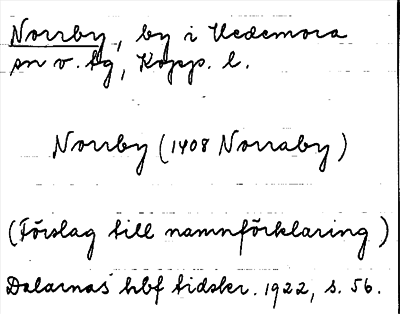 Norrby, by i Hedemora
sn o. tg, Kopp. l.
Norrby (1408 Norraby)
(Förslag till namnförklaring)
Dalarnas hbf tidskr. 1922, s. 56.